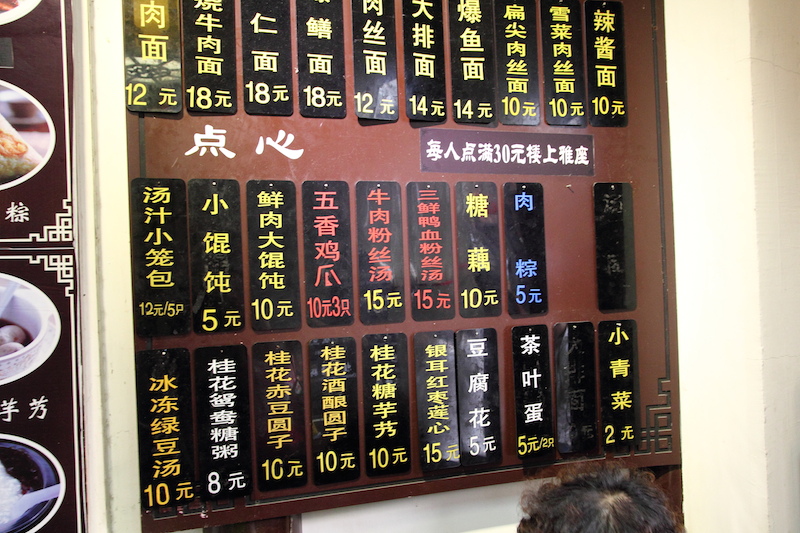 肉面 12元
烧牛肉面 18元
仁面 18元
鳝面 18元
肉丝面 12元
大排面 14元
爆鱼面 14元
扁尖肉丝面 10元
雪菜肉丝面 10元
辣酱面 10元
点心
每人点满30元楼上雅座
汤汁小笼包 12元/5只
小馄饨 5元
鲜肉大馄饨 10元
五香鸡爪 10元3只
牛肉粉丝汤 15元
三鲜鸭血粉丝汤 15元
糖藕 10元
肉粽 5元
冰冻绿豆汤 10元
桂花鸳鸯糖粥 8元
桂花赤豆圆子 10元
桂花酒酿圆子 10元
桂花糖芋艿 10元
银耳红枣莲心 15元
豆腐花 5元
茶叶蛋 5元/2只
小青菜 2元
粽
芋艿